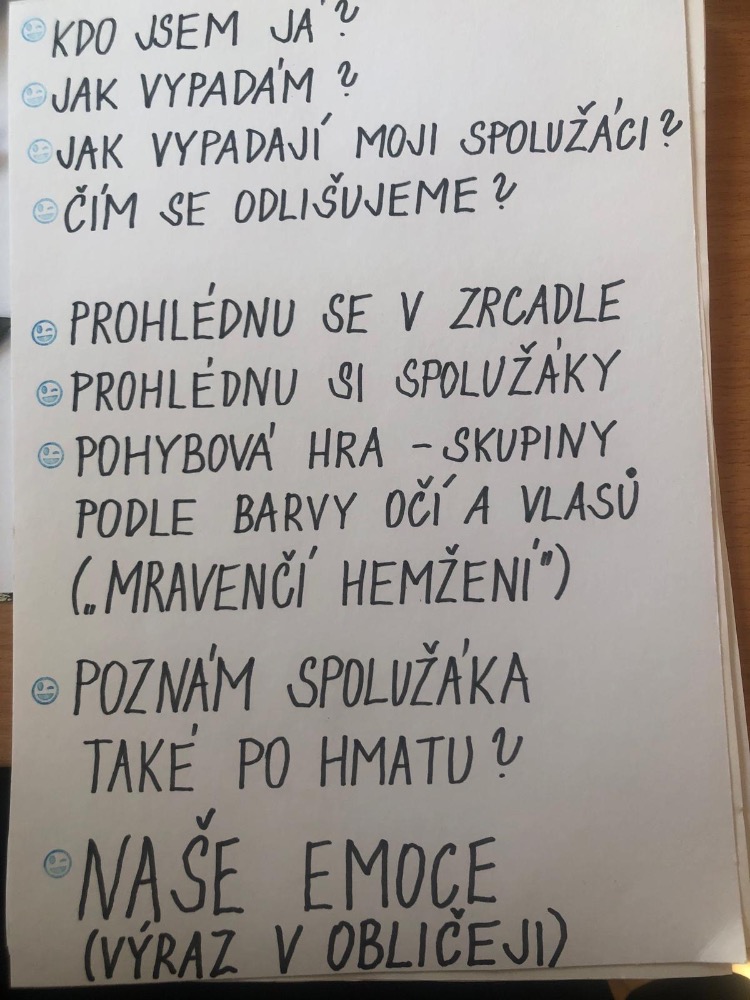 KDO JSEM JÁ?
JAK VYPADÁM?
JAK VYPADAJÍ MOJI SPOLUŽÁCI?
ČÍM SE ODLIŠUJEME?
PROHLÉDNU SE V ZRCADLE
PROHLÉDNU SI SPOLUŽÁKY
POHYBOVÁ HRA - SKUPINY
PODLE BARVY OČÍ A VLASŮ
(„MRAVENČÍ HEMŽENÍ")
POZNÁM SPOLUŽÁKA
TAKÉ PO HMATU?
NAŠE EMOCE
(VÝRAZ V OBLIČEJI)